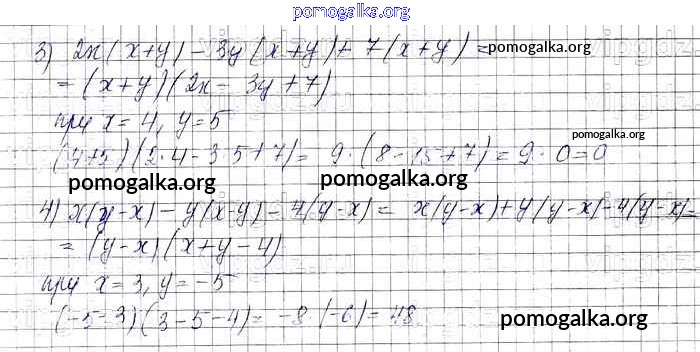 pomogalka.org
3) 2x(x+y) - 3y(x+y) + 7(x+y) = pomogalka.org
= (x+y)(2x - 3y + 7)
при x = 4, y = 5
pomogalka.org
(4+5)(2·4 - 3·5 + 7) = 9·(8 - 15 + 7) = 9·0 = 0
pomogalka.org pomogalka.org
4) x(y-x) - y(x-y) - 4(y-x) = x(y-x) + y(y-x) - 4(y-x) =
= (y-x)(x+y-4)
при x = 3, y = -5
(-5-3)(3-5-4) = -8·(-6) = 48 pomogalka.org